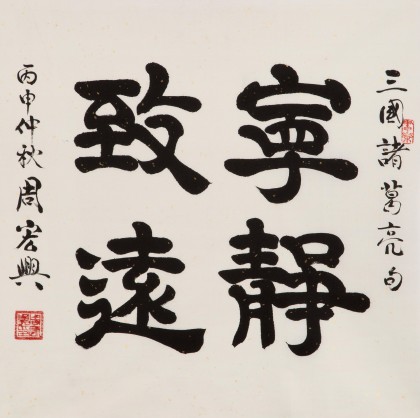 三國諸葛亮句
寧靜
致遠
丙申仲秋周宏興